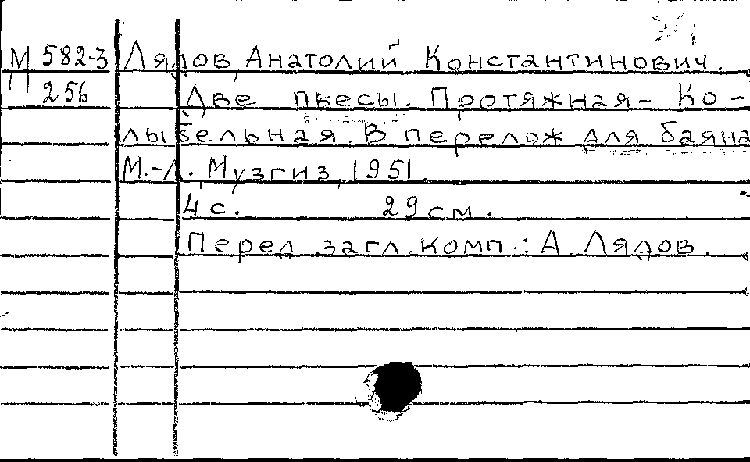 М 582-3 Лядов, Анатолий Константинович.
256 Две пьесы. Протяжная - Ко-
лыбельная. В перелож для баяна
М.-Л., Музгиз, 1951.
4 с. 29 см.
Перед загл. комп.: А. Лядов.